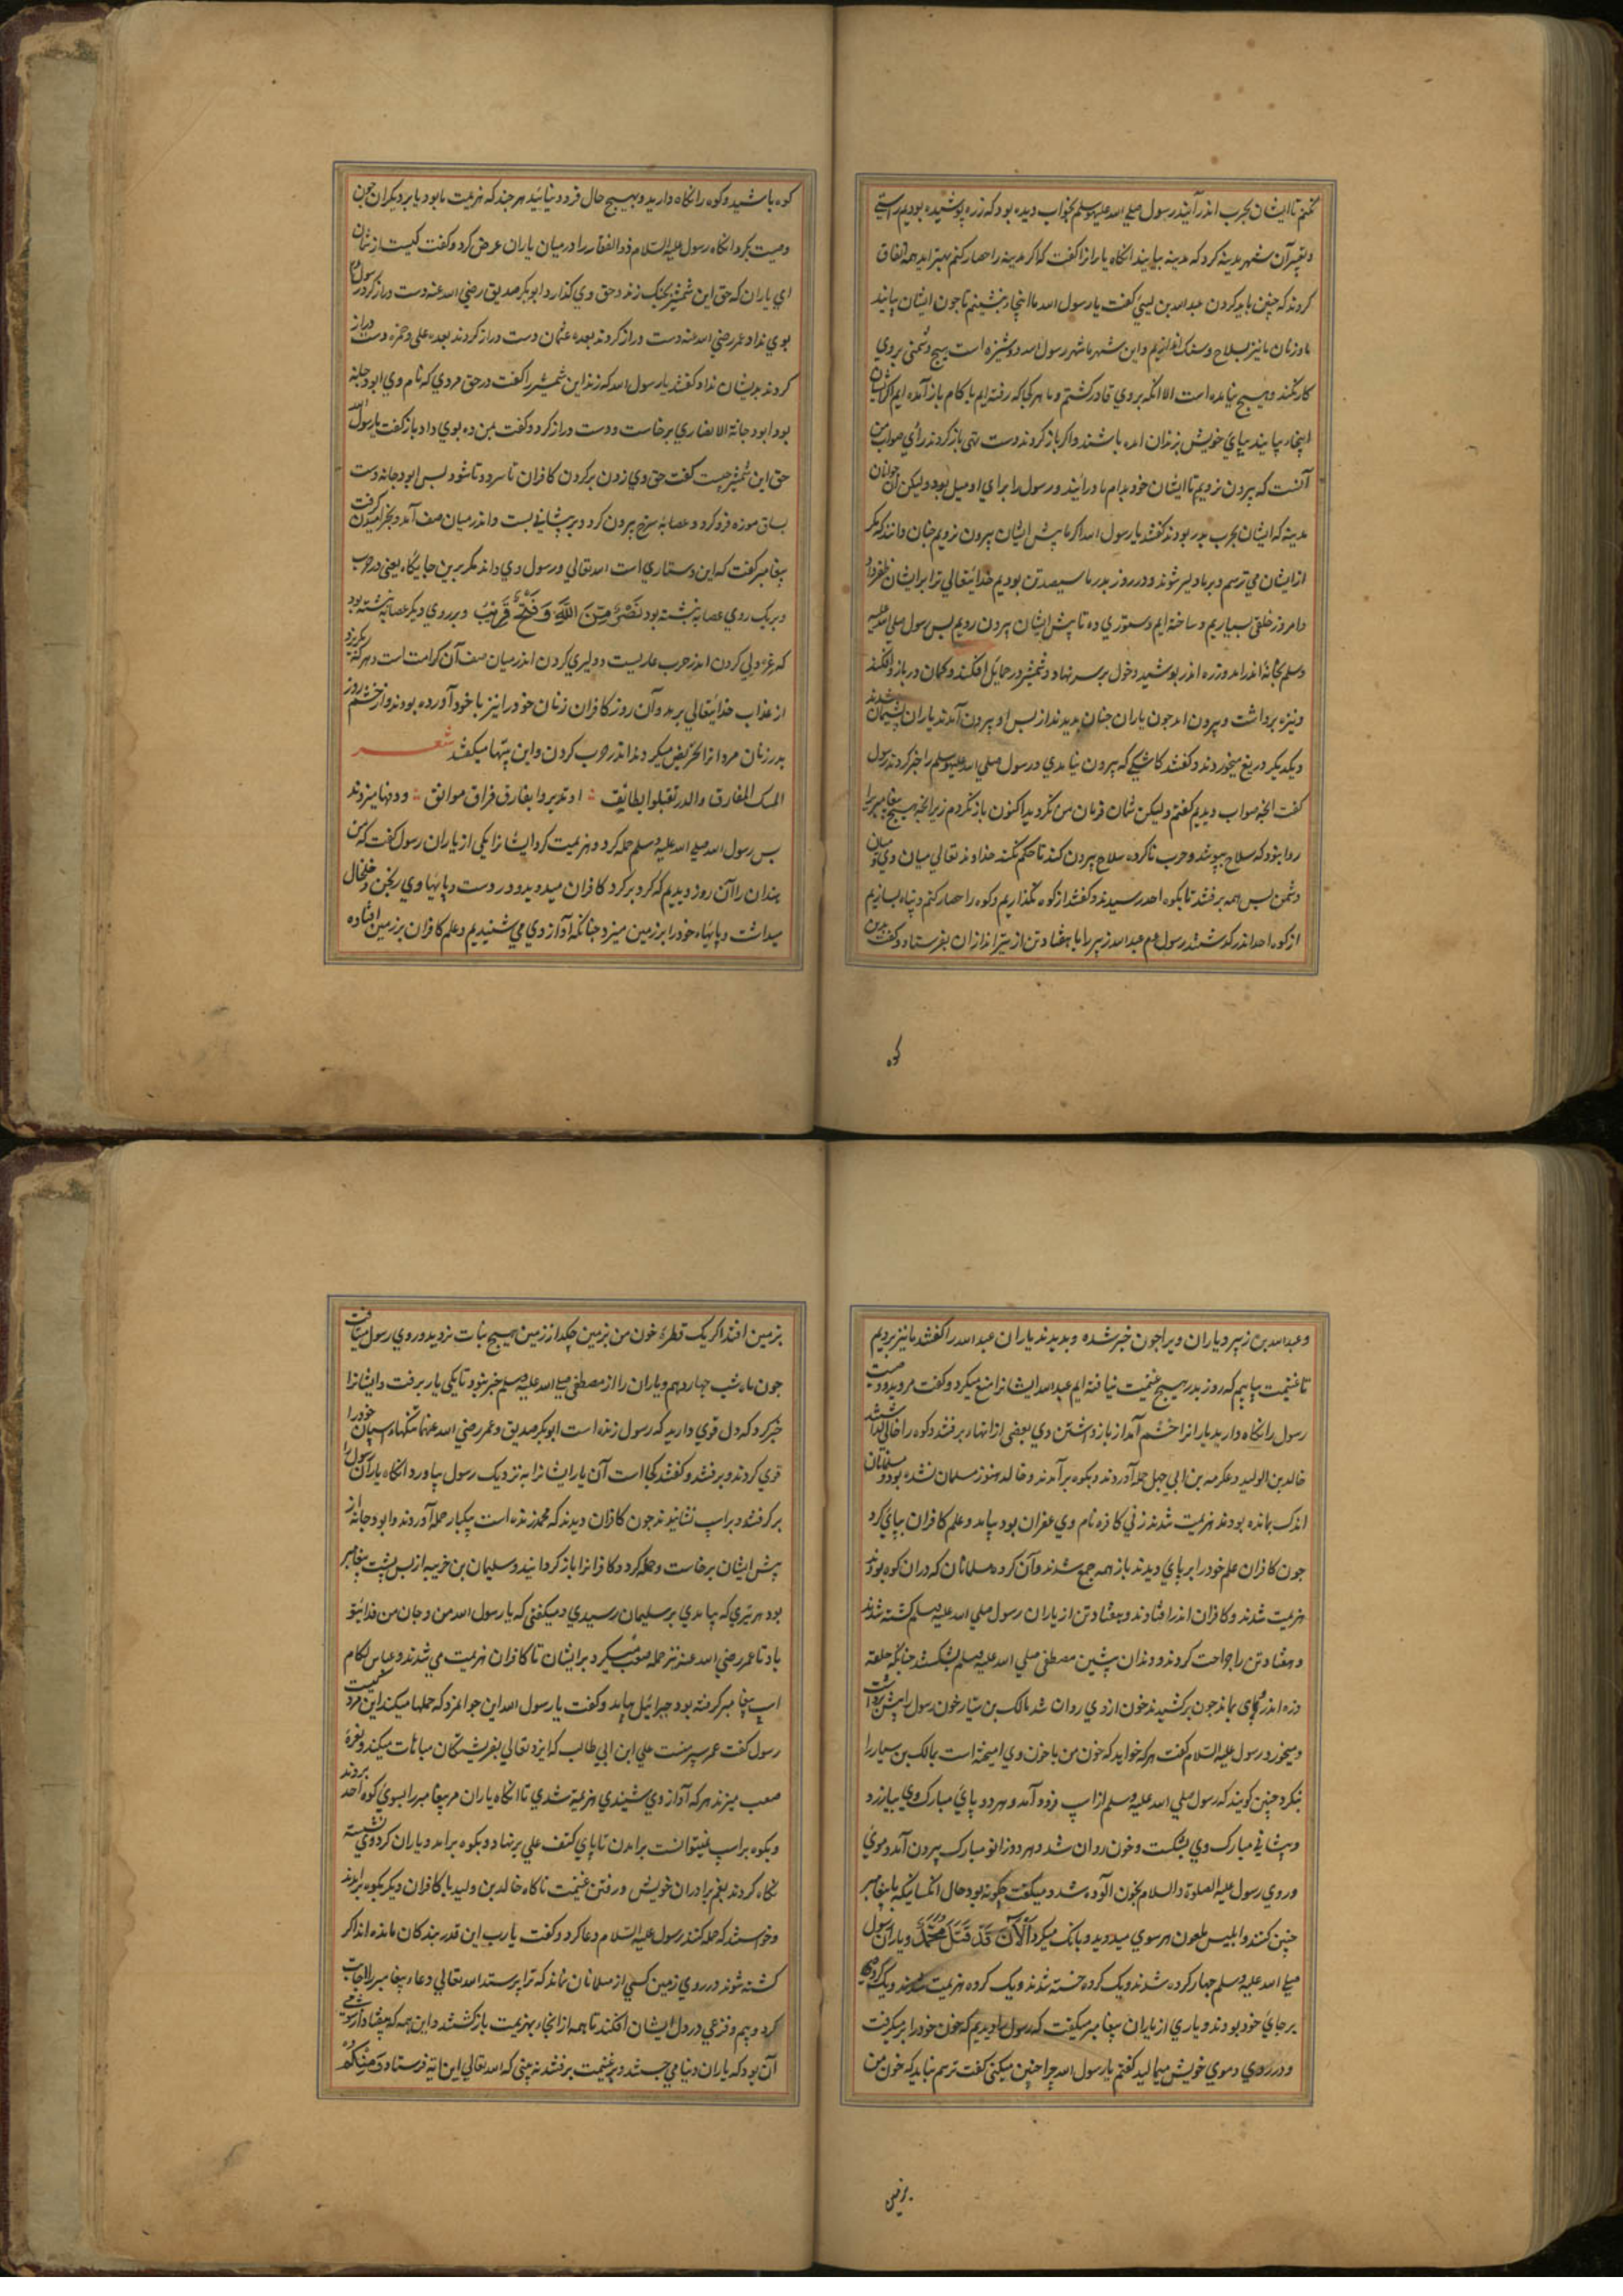 نکنم تا ایشان بحرب اندر آیند رسول صلی الله علیه وسلم بخواب دیده بود که زره پوشیده بودیم راستی
و تعبیر آن شهر مدینه کرد که مدینه بیایند انکاه یارانرا کفت که اکر مدینه را حصار کنم بهتر اید همه اتفاق
کردند که چنین باید کردن عبدالله بن کفت یا رسول الله ما اینجا بنشینیم تا جون ایشان بیایند
ما و زنان ما نیز بسلاح و سنک اندازیم و این شهر ما شهر رسول الله دوشیزه است هیج دشمنی بر وی
کار نکند و هیج نیامده است الا انکه بر وی قادر کشتم و ما هر کجا که رفته ایم با کام باز آمده ایم اکر ایشان
اینجا بیایند بپای خویش بزندان امده باشند و اکر باز کردند دست تهی باز کردند رأی صواب من
آنست که بیرون نرویم تا ایشان خود بدام ما درآیند و رسول را برای او میل بود ولیکن آن جوانان
مدینه که ایشان بحرب بدر بودند کفتند یا رسول الله اکر ما پیش ایشان بیرون نرویم جنان دانند که مکر
از ایشان می ترسم و بر ما دلیر شوند و در روز بدر ما سیصد تن بودیم خدایتعالی ترا بر ایشان ظفر داد
و امروز خلقی بسیاریم و ساخته ایم دستوری ده تا پیش ایشان بیرون رویم بس رسول صلی الله علیه
وسلم بخانه اندر امد و زره اندر پوشید و خود بر سر نهاد و شمشیر در حمایل افکند و کمان در بازو افکند
و نیزه برداشت و بیرون امد جون یاران جنان بدیدند از بس او بیرون آمدند یاران پشیمان شدند
و یکدیکر دریغ میخوردند و کفتند کاشیکی که بیرون نیامدی و رسول صلی الله علیه وسلم را خبر کردند رسول
کفت انجه صواب دیدیم کفتم ولیکن شان فرمان من نکردید اکنون باز نکردم زیرا انجه هیج پیغامبر را
روا نبود که سلاح بپوشد و حرب ناکرده سلاح بیرون کند تا حکم نکند خداوند تعالی میان وی و میان
دشمن بس همه برفتند تا بکوه احد رسیدند و کفتند از کوه نکذاریم و کوه را حصار کنم و پناه سازیم
از کوه احد اندر کذشتند رسول عم عبدالله زبیر را با هفتاد تن از تیراندازان بفرستاد و کفت برین
کوه
کوه باشید و کوه را نکاه دارید و بهیچ حال فرود نیائید هر جند که هزیمت ما بود یا بر دیکران جون
وصیت بکرد انکاه رسول علیه السلام ذوالفقار را در میان یاران عرض کرد و کفت کیست از شمان
ای یاران که حق این شمشیر بجنک زند و حق وی کذارد ابوبکر صدیق رضی الله عنه دست دراز کرد رسول
بوی نداد عمر رضی الله عنه دست دراز کردند بعده عثمان دست دراز کردند بعده علی و حمزه دست دراز
کردند بدیشان نداد کفتند یا رسول الله که زند این شمشیر را کفت در حق مردی که نام وی ابودجانه
بود ابودجانة الانصاری برخاست و دست دراز کرد و کفت بمن ده بوی داد باز کفت یا رسول الله
حق این شمشیر چیست کفت حق وی زدن بر کردن کافران تا سرد و تا شود بس ابودجانه دست
بساق موزه فرو کرد و عصابهٔ سرخ بیرون کرد و بر پیشانی بست و اندر میان صف آمد و بخرامیدن کرفت
پیغامبر کفت که این دستاری است الله تعالی و رسول وی داند مکر برین جایکاه یعنی در حرب
و بر یک روی عصابه نبشته بود نَصْرٌ مِنَ اللّٰهِ وَفَتْحٌ قَرِيبٌ و بر روی دیکر عصابه نبشته بود
که غره دلی کردن اندر حرب عاریست و دلیری کردن اندر میان صف آن کرامت است و هر که بکریزد
از عذاب خدایتعالی برهد و آن روز کافران زنان خود را نیز با خود آورده بودند و از خشم روز
بدر زنان مردانرا تحریض میکردند اندر حرب کردن و این بیتها میکفتند شعر
المسک المفارق والدر تقبلوا نعانق ∴ او تدبروا نفارق فراق موامق ∴ و دفها میزدند
بس رسول الله صلی الله علیه وسلم حمله کرد و هزیمت کرد ایشانرا یکی از یاران رسول کفت که من
هندان را آن روز دیدیم که کرد بر کرد کافران میدوید و در دست و پایهاوی رنجن و خلخال
میداشت و پایهاء خود را بر زمین میزد جنانکه آواز وی می شنیدیم و علم کافران بر زمین افتاده
و عبدالله بن زبیر و یاران ویرا جون خبر شده و بدیدند یاران عبدالله را کفتند ما نیز برویم
تا غنیمت یابیم که روز بدر هیچ غنیمت نیافته ایم عبدالله ایشانرا منع میکرد و کفت مروید و وصیت
رسول را نکاه دارید یارانرا خشم آمد از باز داشتن وی بعضی از انها برفتند و کوه را خالی کذاشتند
خالد بن الولید و عکرمه بن ابی جهل حمله آوردند و بکوه برآمدند و خالد هنوز مسلمان نشده بود و مسلمانان
اندک مانده بودند هزیمت شدند زنی کافره نام وی عفران بود بیامد و علم کافران بپای کرد
جون کافران علم خود را بر پای دیدند باز همه جمع شدند و آن کروه مسلمانان که در ان کوه بودند
هزیمت شدند و کافران اندر افتادند و هفتاد تن از یاران رسول صلی الله علیه وسلم کشته شدند
و هفتاد تن را جراحت کردند و دندان پشین مصطفی صلی الله علیه وسلم بشکستند جنانکه حلقه
زره اندر وی بماند جون برکشیدند خون از وی روان شد مالک بن سیار خون رسول را پیش
و میخورد رسول علیه السلام کفت هر که خواهد که خون من با خون وی امیخته است بمالک بن سیار را
بنکرد چنین کویند که رسول صلی الله علیه وسلم از اسپ فرود آمد و هر دو پای مبارک وی بیازرد
و پیشانی مبارک وی بشکست و خون روان شد و هر دو زانو مبارک بیرون آمد و موی
و روی رسول علیه الصلوة والسلام بخون آلوده شد و میکفت چکونه بود حال انکسانیکه با پیغامبر
چنین کنند و ابلیس ملعون هر سوی میدوید و بانک میکرد أَلَا إِنَّ قَدْ قُتِلَ مُحَمَّدٌ و یاران رسول
صلی الله علیه وسلم جهار کروه شدند و یک کروه خسته شدند و یک کروه هزیمت شدند و یک کروهی
بر جای خود بودند و یاری از یاران پیغامبر میکفت که رسول را دیدیم که خون خود را برمیکرفت
و در روی و موی خویش میمالید کفتم یا رسول الله چرا چنین میکنی کفت ترسم نباید که خون من
بر زمین
بزمین افتد اکر یک قطرهٔ خون من بزمین چکد از زمین هیچ نبات نروید و روی رسول میتافت
جون ماه شب جهاردهم و یاران را از مصطفی صلی الله علیه وسلم خبر نبود تا یکی یار برفت و ایشانرا
خبر کرد که دل قوی دارید که رسول زنده است ابوبکر صدیق و عمر رضی الله عنهما تنکهاء اسپان خود را
قوی کردند و برفتند و کفتند کجا است آن یار ایشانرا به نزدیک رسول بیاورد انکاه یاران رسول را
برکرفتند و بر اسپ نشانیدند جون کافران دیدند که محمد زنده است یکبار حمله آوردند و ابودجانه از
پیش ایشان برخاست و حمله کرد و کافرانرا باز کردانید و سلیمان بن خریبه از بس پشت پیغامبر
بود هر تیری که بیامدی بر سلیمان رسیدی و میکفتی که یا رسول الله من و جان من فدای تو
باد تا عمر رضی الله عنه نیز حمله صعب میکرد بر ایشان تا کافران هزیمت می شدند و عباس لکام
اسپ پیغامبر کرفته بود جبرائیل بیامد و کفت یا رسول الله این جوانمرد که حملها میکند این مرد کیست
رسول کفت عمر پسر منست علی ابن ابی طالب که ایزد تعالی بفریشتکان مباهات میکند و نعرهٔ
صعب میزند هر که آواز وی شنیدی هزیمة شدی تا انکاه یاران مر پیغامبر را بسوی کوه احد بردند
و بکوه بر اسپ نمیتوانست برامدن تا پای کتف علی بر نهاد و بکوه برامد و یاران کرد وی نشسته
نکاه کردند بغم برادران خویش و رفتن غنیمت ناکاه خالد بن ولید با کافران دیکر بکوه برامدند
و خواستند که حمله کنند رسول علیه السلام دعا کرد و کفت یا رب این قدر بندکان مانده اند اکر
کشته شوند در روی زمین کسی از مسلمانان نماند که ترا پرستد الله تعالی دعاء پیغامبر را اجابت
کرد و بیم و فزعی در دل ایشان افکند تا همه از انجا بهزیمت باز کشتند و این همه که بیفتاد از شومی
آن بود که یاران دنیا می جستند و بر غنیمت برفتند نه بینی که الله تعالی این ایة فرستاد وَمِنْكُمْ